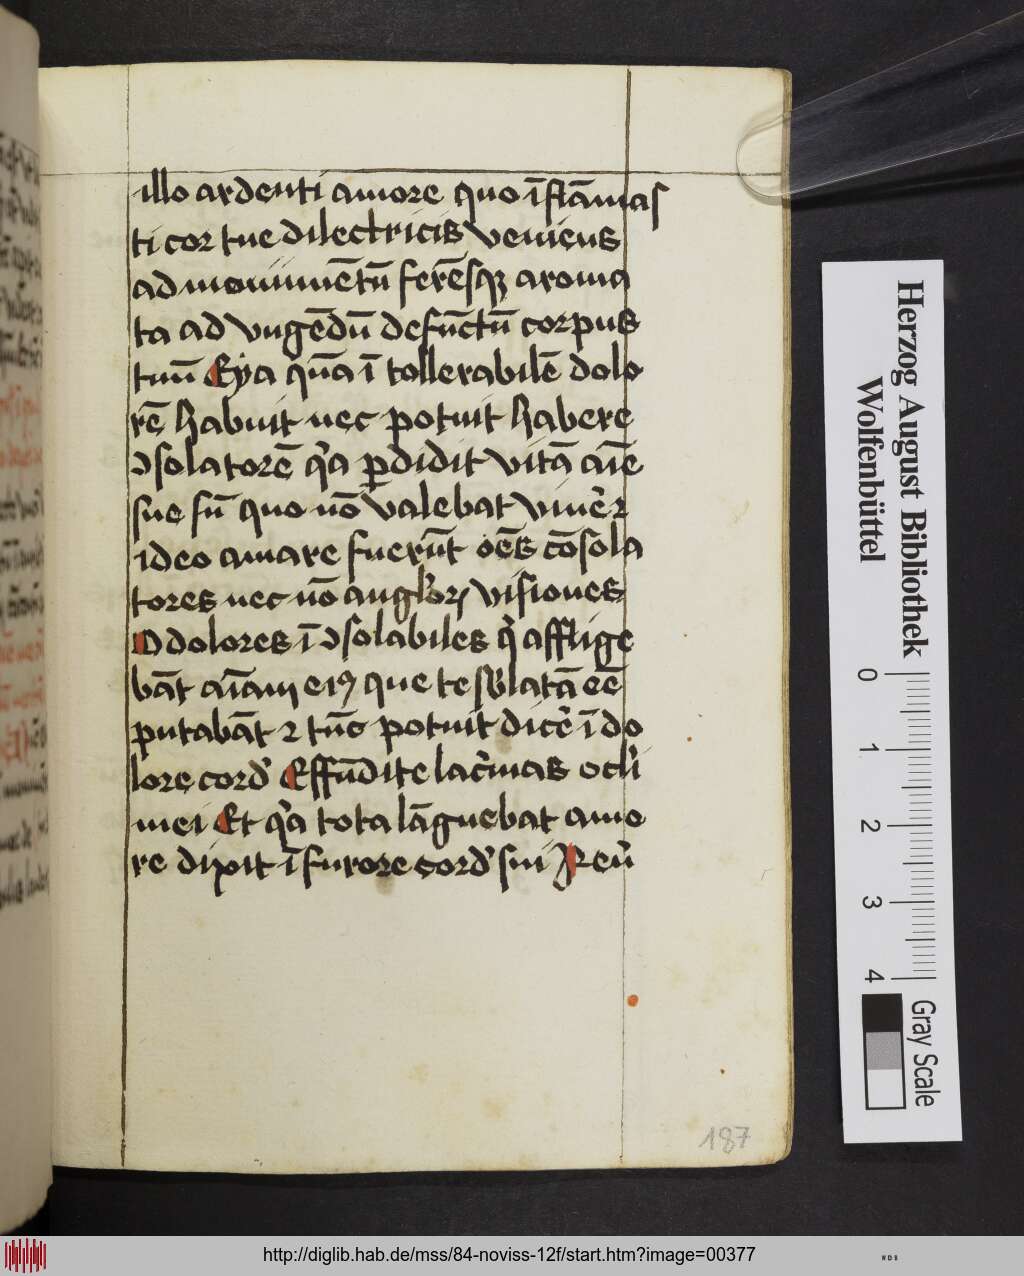 illo ardenti amore quo īflāmas
ti cor tue dilectricis veniens
ad monimētū ferēsqꝫ aroma
ta ad vngēdū defūctū corpus
tuū Eya quā ī tollerabilē dolo
rē habuit nec potuit habere
ↄsolatorē qͥa ꝑdidit vitā aīe
sue sū quo nō valebat viue᷑ ⁊
ideo amare fuerūt oēs cōsola
tores nec nō anglꝰoꝝ visiones
O dolores ī ↄsolabiles qͥ afflige
bāt aīam eiꝰ que te sublatā eē
putabāt ⁊ tūc potuit dice᷑ ī do
lore cord᷑ Effūdite lac᷑mas ocl̓i
mei Et qͥa tota lāguebat amo
re dixit ī furore cord᷑ sui Reu᷑
187
Herzog August Bibliothek
Wolfenbüttel
0 1 2 3 4
Gray Scale
http://diglib.hab.de/mss/84-noviss-12f/start.htm?image=00377